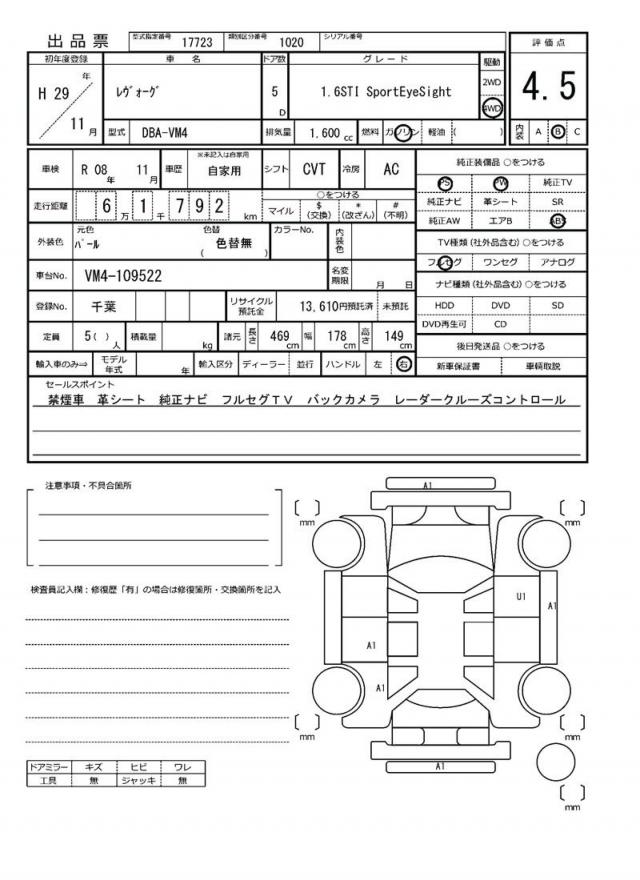 出品票 型式指定番号 17723 類別区分番号 1020 シリアル番号
評価点
4.5
初年度登録 車名 ドア数 グレード 駆動
H 29 年 11 月 レヴォーグ 5 D 1.6STI SportEyeSight 2WD 4WD
型式 DBA-VM4 排気量 1.600 cc 燃料 ガソリン 軽油 ( ) 内装 A B C
車検 R 08 年 11 月 車歴 ※未記入は自家用 自家用 シフト CVT 冷房 AC
走行距離 6 万 1 千 7 9 2 km ○をつける マイル $ (交換) * (改ざん) # (不明)
外装色 元色 パール 色替 ( 色替無 ) カラーNo. 内装色
車台No. VM4-109522 名変期限 月 日
登録No. 千葉 リサイクル預託金 13,610円預託済 未預託
定員 5 ( ) 人 積載量 kg 諸元 長さ 469 cm 幅 178 cm 高さ 149 cm
輸入車のみ⇒ モデル年式 年 輸入区分 ディーラー 並行 ハンドル 左 右
純正装備品 ○をつける
PS PW 純正TV
純正ナビ 革シート SR
純正AW エアB ABS
TV種類(社外品含む) ○をつける
フルセグ ワンセグ アナログ
ナビ種類(社外品含む) ○をつける
HDD DVD SD
DVD再生可 CD
後日発送品 ○をつける
新車保証書 車輌取説
セールスポイント
禁煙車 革シート 純正ナビ フルセグTV バックカメラ レーダークルーズコントロール
注意事項・不具合箇所
検査員記入欄：修復歴「有」の場合は修復箇所・交換箇所を記入
A1
〔 〕 mm 〔 〕 mm
U1
A1
A1
A1
〔 〕 mm 〔 〕 mm
A1
〔 〕 mm
ドアミラー キズ ヒビ ワレ
工具 無 ジャッキ 無